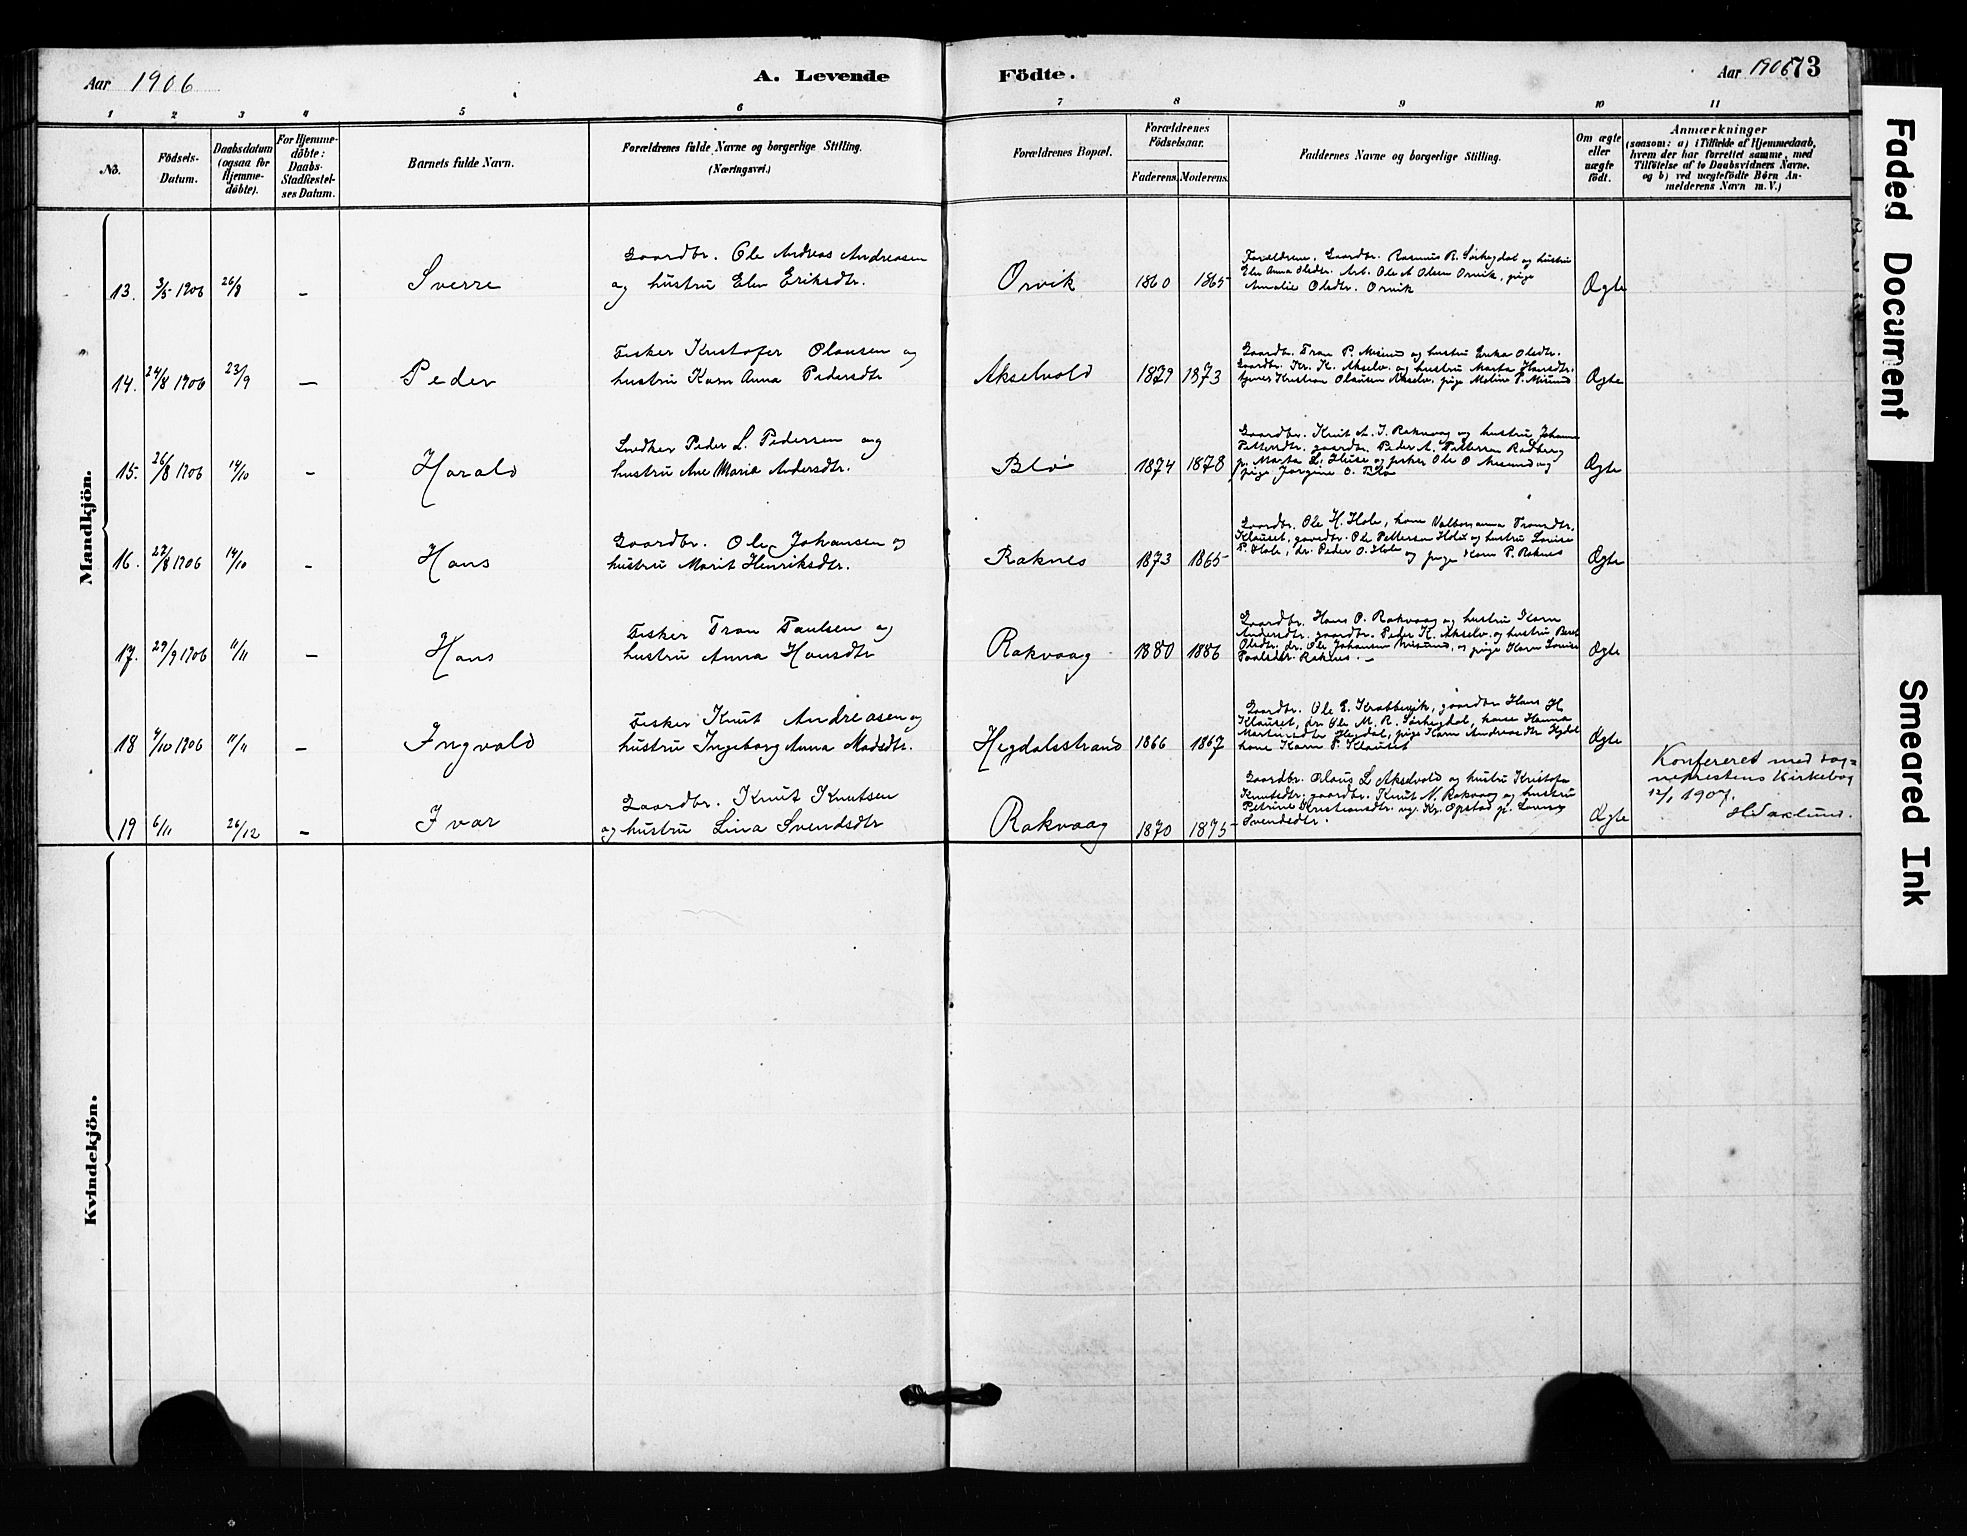 Aar 1906
A. Levende
Födte.
Aar 1906
73
1 2 3 4 5 6 7 8 9 10 11
No.
Födsels-
Datum.
Daabsdatum
(ogsaa for
Hjemme-
döbte).
For Hjemme-
döbte:
Daabs-
Stadfæstel-
ses Datum.
Barnets fulde Navn.
Forældrenes fulde Navne og borgerlige Stilling.
(Næringsvei.)
Forældrenes Bopæl.
Forældrenes
Födselsaar.
Faderens. Moderens.
Faddernes Navne og borgerlige Stilling.
Om ægte
eller
uægte
födt.
Anmærkninger
(saasom: a) i Tilfælde af Hjemmedaab,
hvem der har forrettet samme, med
Tilföielse af to Daabsvidners Navne,
og b) ved uægtefödte Börn An-
melderens Navn m. V.)
Mandkjön.
13. 3/5 1906 26/8 – Sverre
Gaardbr. Ole Andreas Andreasen
og hustru Elen Eriksdtr.
Orvik 1860 1865
Forældrene, Gaardbr. Rasmus R. Sørhegdal og hustru
Elen Anna Olsdtr. Arb. Ole A Olsen Orvik, pige
Amalie Olsdtr. Orvik
Ægte
14. 24/8 1906 23/9 – Peder
Fisker Kristofer Olausen og
hustru Karn Anna Pedersdtr
Akselvold 1879 1873
Gaardbr. Tron P. Misund og hustru Erika Olsdtr.
Gaardbr. Kr. K. Akselv. og hustru Marta Hansdtr.
Kristian Olausen Akselv. pige Moline P. Misund
Ægte
15. 26/8 1906 14/10 – Harald
Snedker Peder L. Pedersen og
hustru Ane Maria Andersdtr.
Blø 1874 1878
Gaardbr. Knut A. J. Rakvaag og hustru Johanne
Pettersdtr. gaardbr. Peder A. Pettersen Rødberg
p. Marta L. Huse og fisker Ole O Misund og
pige Jørgine O. Blø
Ægte
16. 22/8 1906 14/10 – Hans
Gaardbr. Ole Johansen og
hustru Marit Henriksdtr.
Raknes 1873 1865
Gaardbr. Ole H. Hole, kone Valborganna Tronsdtr.
Klauset, gaardbr. Ole Pettersen Hole og hustru Louise
P. Hole, dr. Peder O. Hole og pige Karn P. Raknes
Ægte
17. 29/9 1906 11/11 – Hans
Fisker Tron Paulsen og
hustru Anna Hansdtr
Rakvaag 1880 1886
Gaardbr. Hans P. Rakvaag og hustru Karn
Andersdtr. gaardbr. Peder K. Akselv. og hustru Beret
Olsdtr. dr. Ole Johansen Misund, og pige Karn Louise
Paulsdtr. Raknes. –
Ægte
18 4/10 1906 11/11 – Ingvald
Fisker Knut Andreasen og
hustru Ingeborg Anna Madsdtr.
Hegdalsstrand 1866 1867
Gaardbr. Ole E. Krabbevik, gaardbr Hans H.
Klauset, dr. Ole M. R. Sørhegdal, kone Hanna
Martinsdtr Hegdal, pige Karn Andreasdtr Hegdal
kone Karn P. Klauset
Ægte
19 6/11 26/12 – Ivar
Gaardbr. Knut Knutsen
og hustru Lina Svendsdtr
Rakvaag 1870 1875
Gaardbr. Olaus L Akselvold og hustru Kristofa
Knutsdtr. gaardbr. Knut N. Rakvaag og hustru
Petrine Kristiansdtr. ug. Kr. Opstad p. Lovise
Svendsdtr.
Ægte
Konfereret med sog-
neprestens Kirkebog
12/1 1907.
Kvindekjön.
Faded Document
Smeared Ink